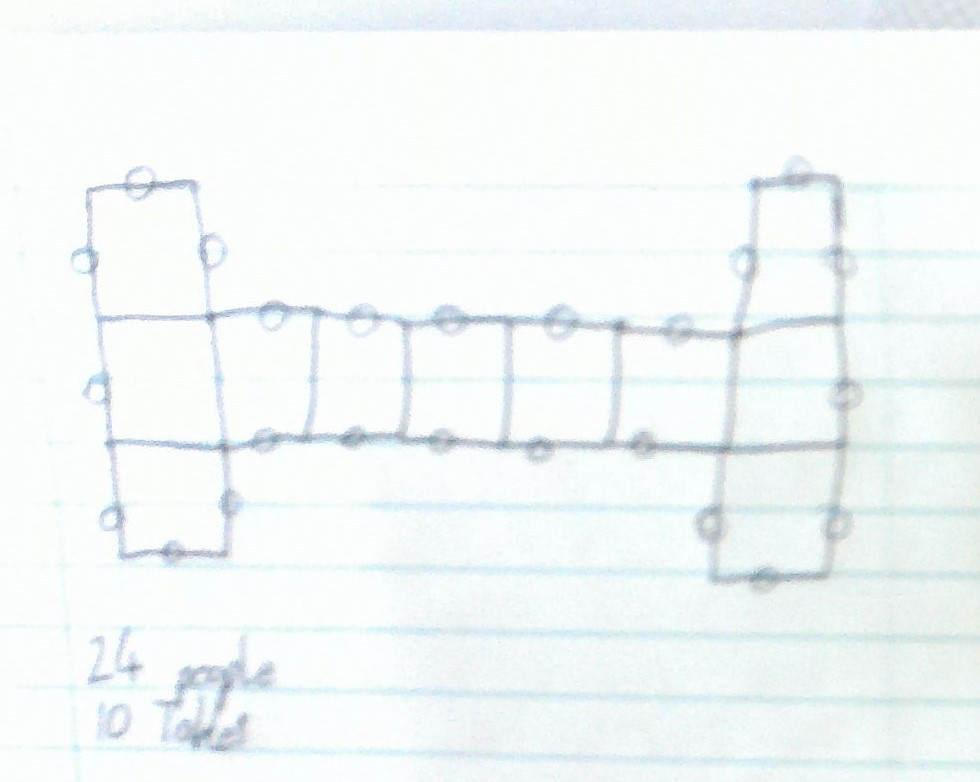 24 people
10 Tables